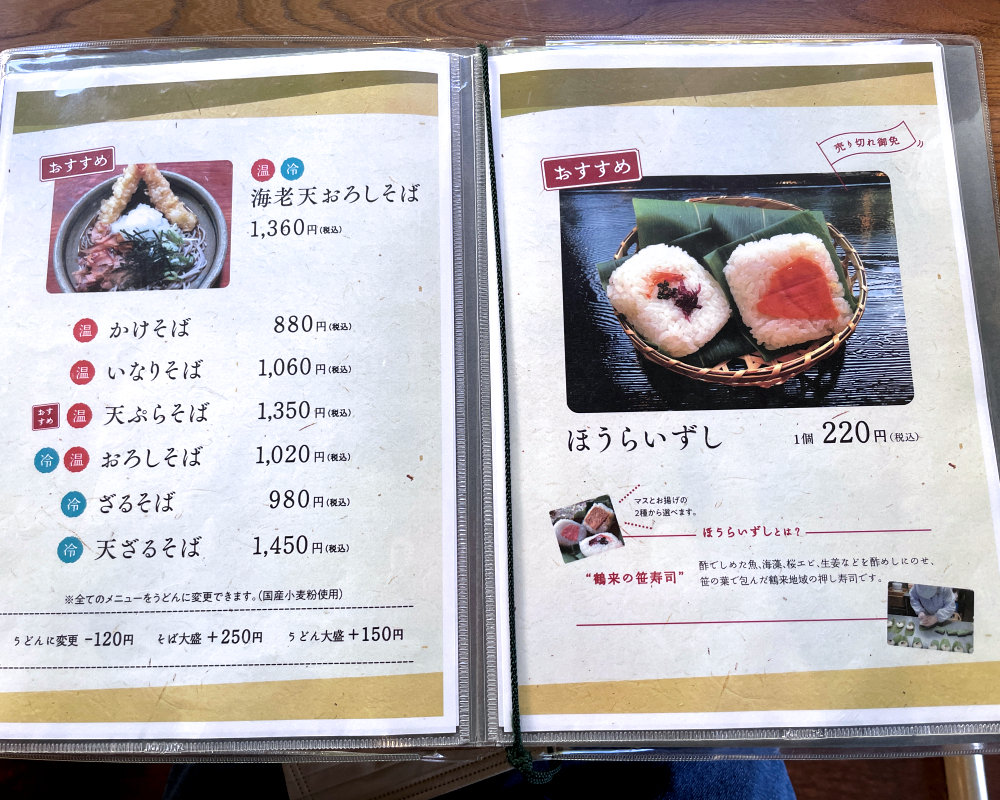 おすすめ
温 冷
海老天おろしそば
1,360円(税込)
温 かけそば 880円(税込)
温 いなりそば 1,060円(税込)
おすすめ 温 天ぷらそば 1,350円(税込)
冷 温 おろしそば 1,020円(税込)
冷 ざるそば 980円(税込)
冷 天ざるそば 1,450円(税込)
※全てのメニューをうどんに変更できます。(国産小麦粉使用)
うどんに変更 -120円 そば大盛 +250円 うどん大盛 +150円
おすすめ
売り切れ御免
ほうらいずし 1個 220円(税込)
マスとお揚げの
2種から選べます。
ほうらいずしとは?
“鶴来の笹寿司”
酢でしめた魚、海藻、桜エビ、生姜などを酢めしにのせ、
笹の葉で包んだ鶴来地域の押し寿司です。